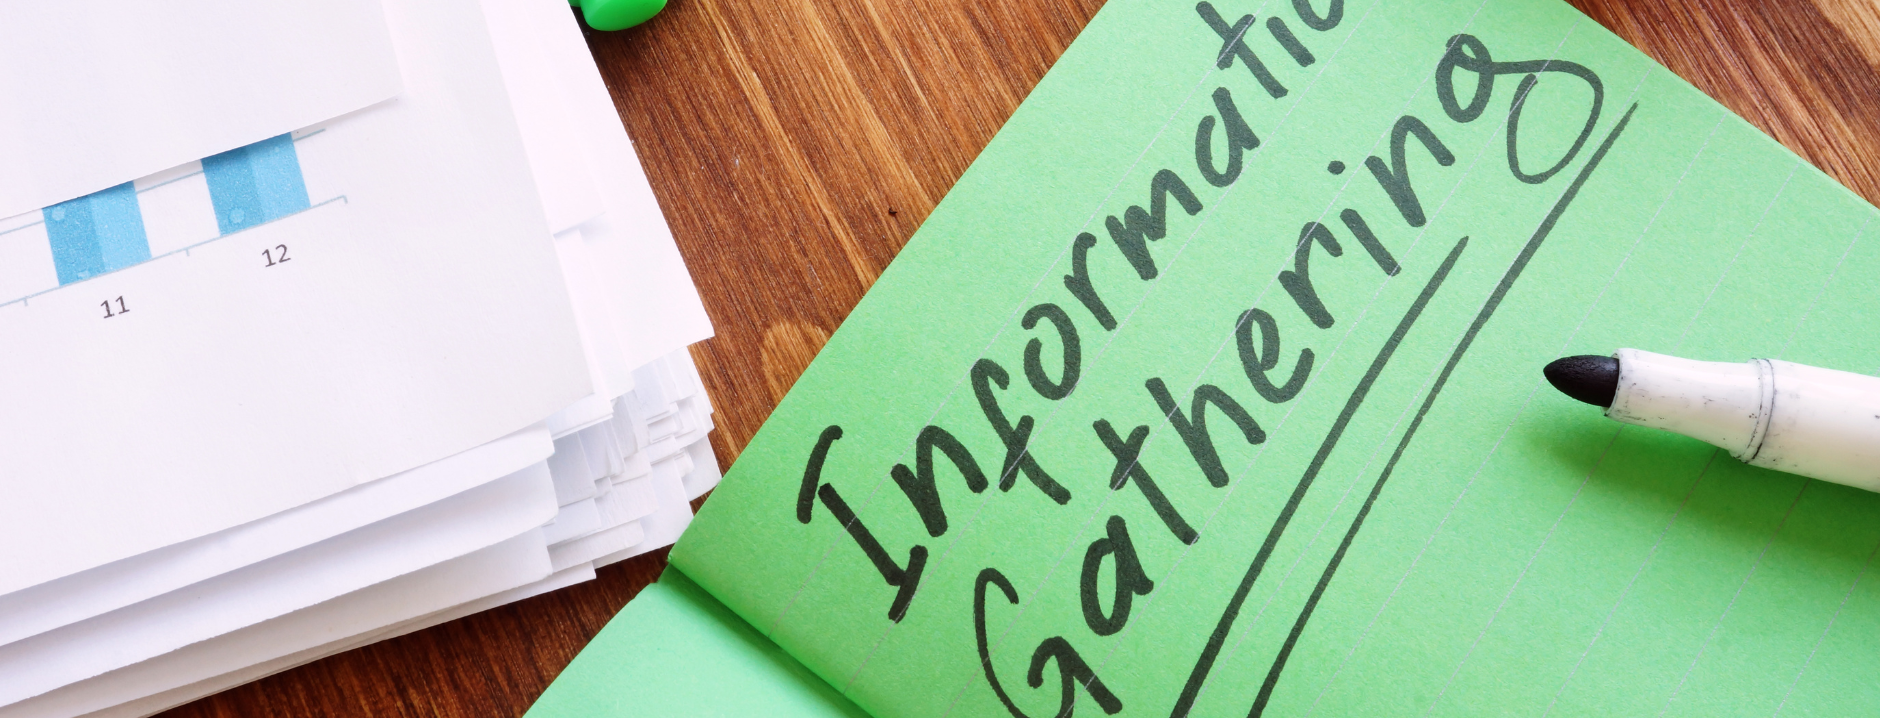 11
12
Informatio
Gathering